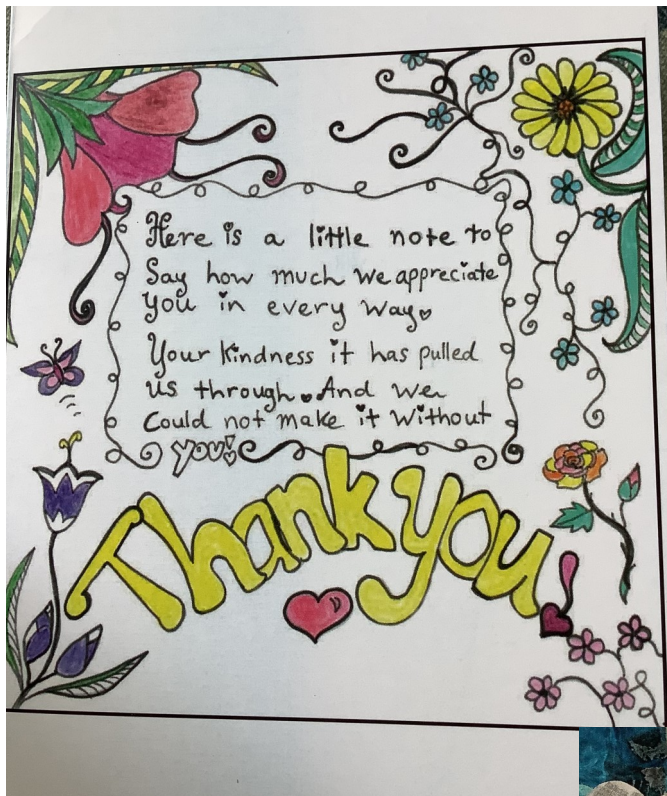 Here is a little note to
Say how much we appreciate
you in every way
Your kindness it has pulled
us through. And we
Could not make it without
you!
Thank you!